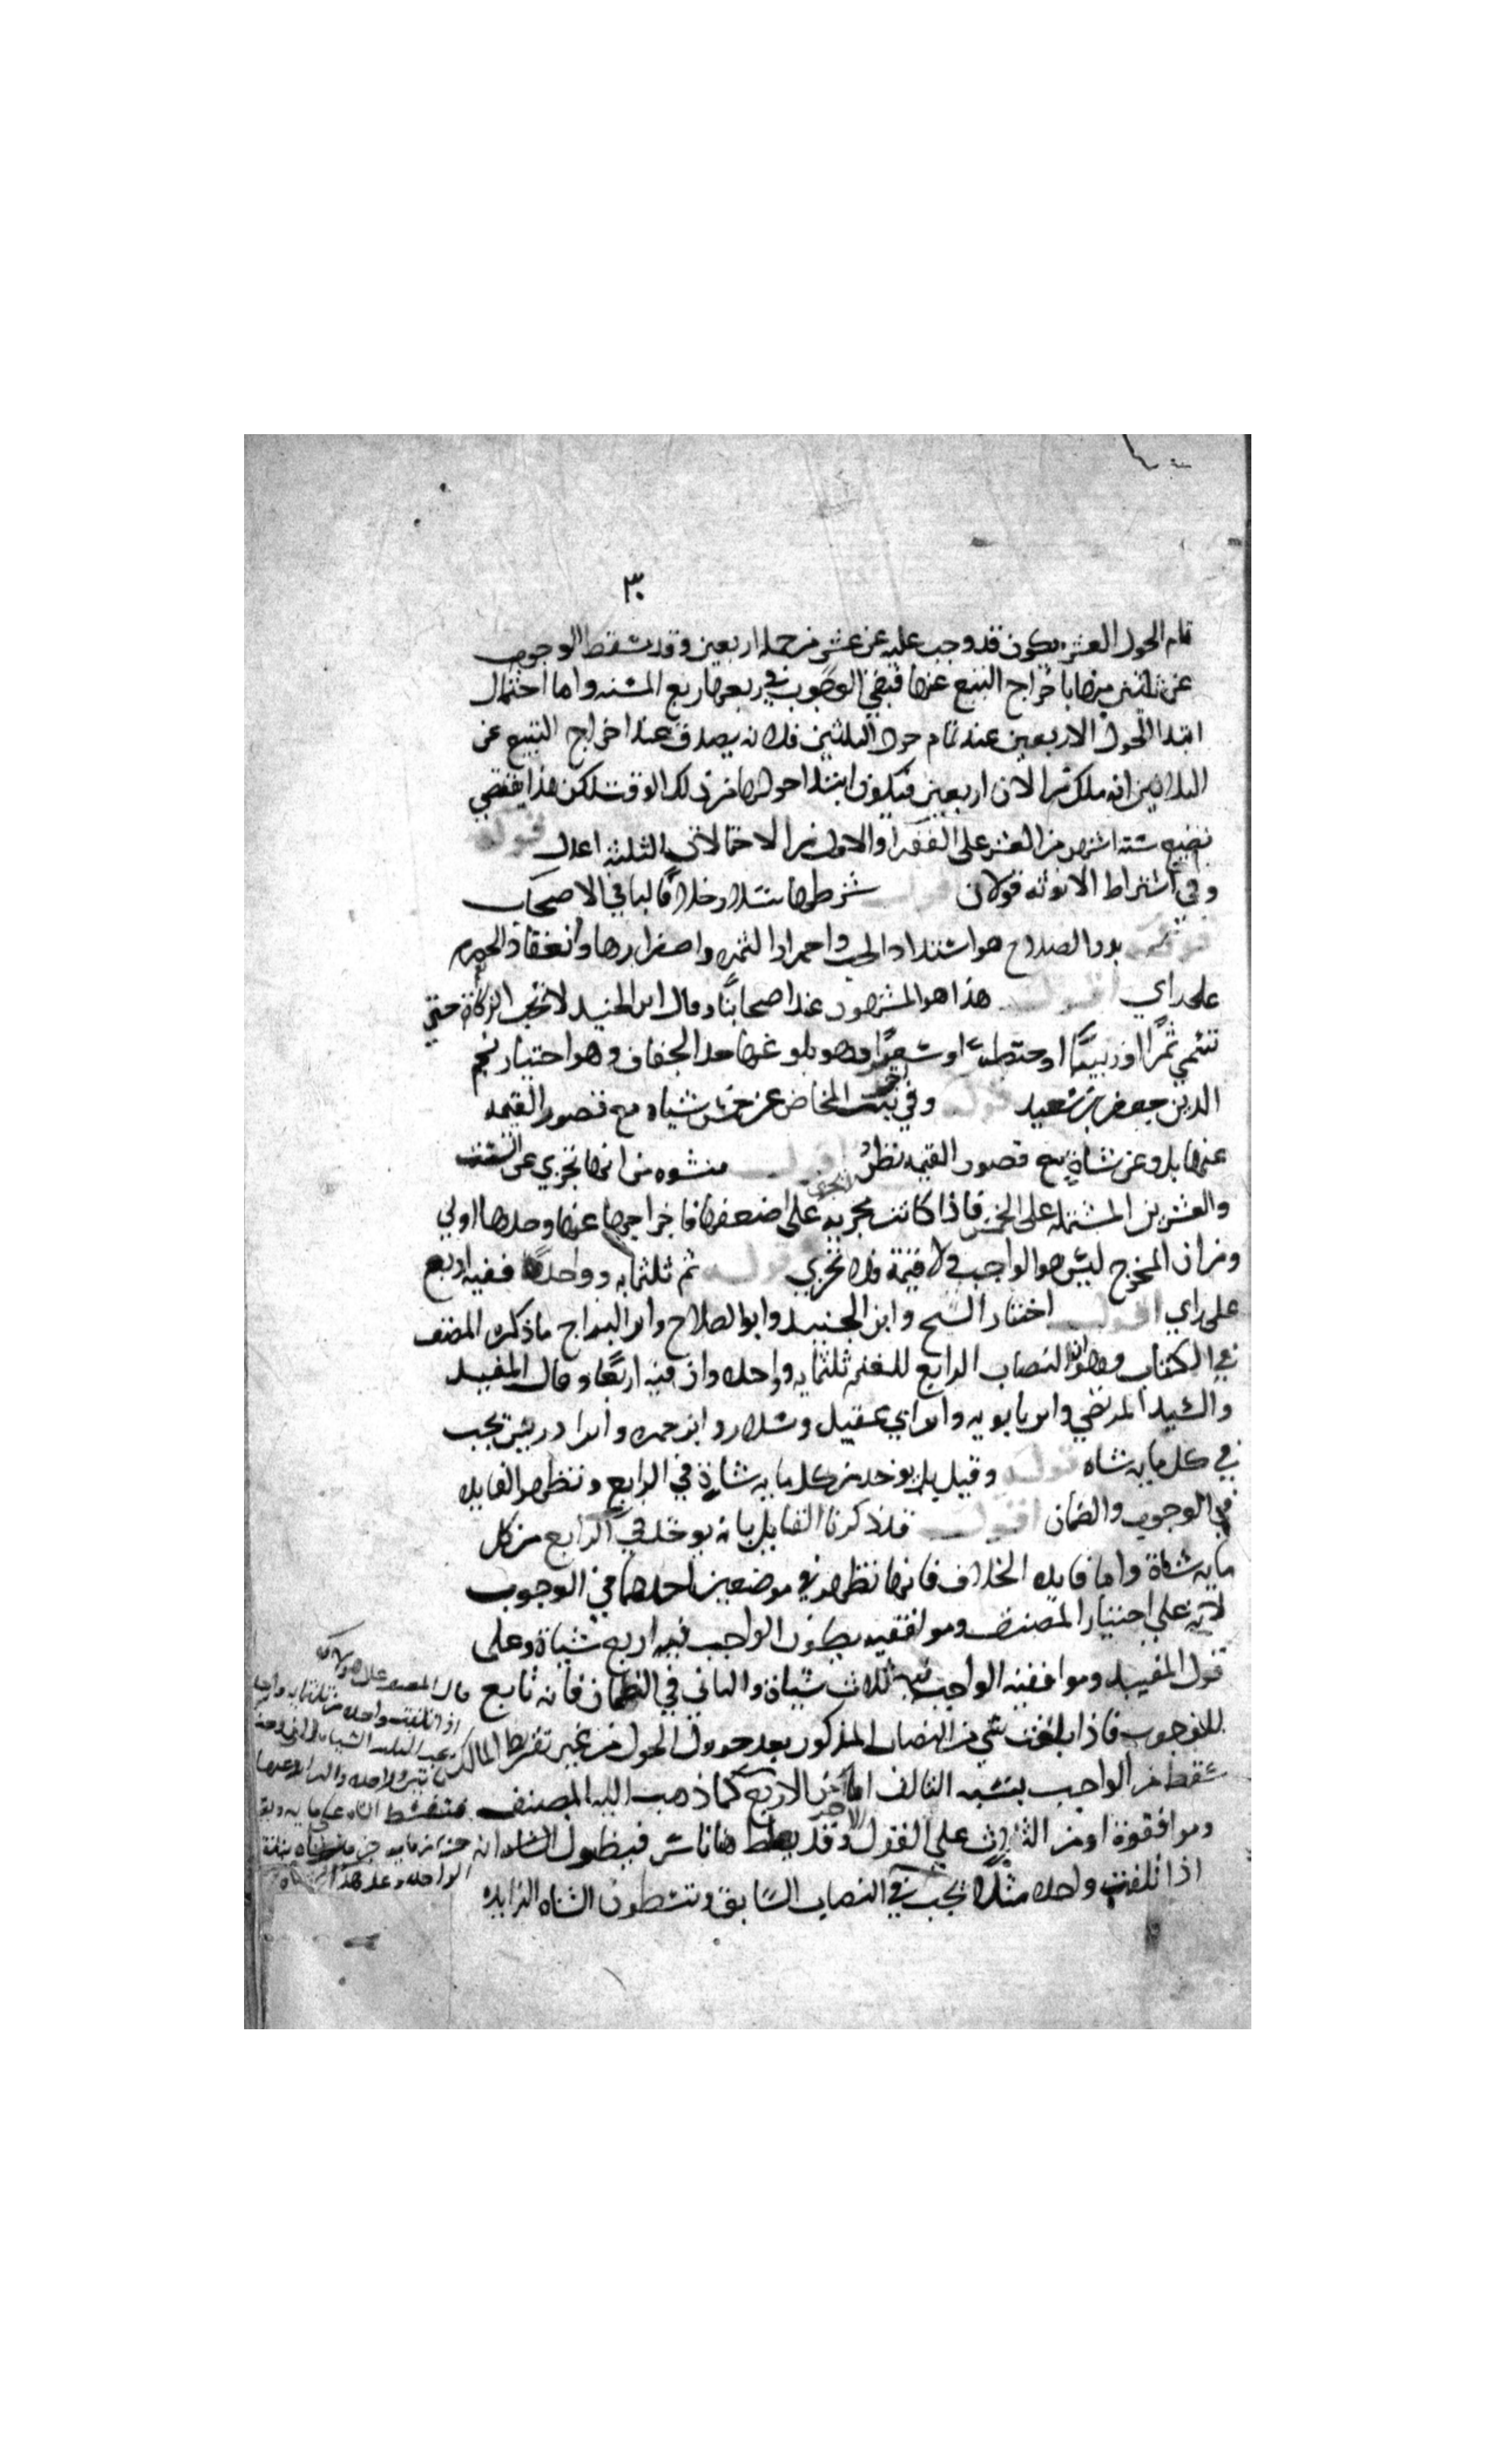 ٣٠
تمام الحول العشر يكون قد وجب عليه عن عشر من جملة اربعين وقد سقط الوجوب
عن ثلثين منها باخراج التبيع عنها فبقي الوجوب في ربعها ربع المسنه واما احتمال
ابتدا الحول الاربعين عند تمام حول الثلثين فلانه يصدق عند اخراج التبيع عن
الثلاثين انه ملك الان اربعين فيكون ابتدا حولها من ذلك الوقت لكن هذا يقتضي
تضييع ستة اشهر من العشر على الفقرا والاول من الاحتمالات الثلثه اعدل قوله
وفي اشتراط الانوثه قولان اقول شرطها سلار خلافا لباقي الاصحاب
قوله بدو الصلاح هو اشتداد الحب واحمرار الثمره واصفرارها وانعقاد الحصرم
على راي اقول هذا هو المشهور عند اصحابنا وقال ابن الجنيد لا تجب الزكاة حتى
تسمي تمرا او زبيبا او حنطة او شعيرا وهو بلوغها حد الجفاف وهو اختيار نجم
الدين جعفر بن سعيد قوله وفي بنت المخاض عن خمس شياه مع قصور القيمه
عنها بل وعن شاة مع قصور القيمه نظر اقول منشوه من انها تجزي عن الست
والعشرين المشتمله على الخمس فاذا كانت مجزيه على اضعفها فاخراجها عنها وحدها اولي
ومن ان المخرج ليس هو الواجب ولا قيمة فلا تجزي قوله ثم ثلثمايه وواحدة ففيه اربع
على راي اقول اختار الشيخ وابن الجنيد وابو الصلاح وابن البراج ما ذكره المصنف
في الكتاب وهو ان النصاب الرابع للغنم ثلثمايه وواحده وان فيه اربعا وقال المفيد
والسيد المرتضي وابن بابويه وابن ابي عقيل وسلار وابن حمزه وابن ادريس تجب
في كل مايه شاه قوله وقيل بل يوخذ من كل مايه شاة في الرابع وتظهر الفايده
في الوجوب والضمان اقول قد ذكرنا القايل بانه يوخذ في الرابع من كل
مايه شاة واما فايده الخلاف فانها تظهر في موضعين احدهما في الوجوب
لانه على اختيار المصنف وموافقيه يكون الواجب فيه اربع شياة وعلى
قول المفيد وموافقيه الواجب فيه ثلاث شياة والثاني في الضمان فانه تابع
للوجوب فاذا تلفت شي من النصاب المذكور بعد حوول الحول من غير تفريط المالك
سقط من الواجب بنسبه التالف اما من الاربع كما ذهب اليه المصنف
وموافقوه او من الثلاث على القول الاخر وقد يغلط هنا ناس فيظنون انه
اذا تلفت واحده مثلا تجب في النصاب السابق وتسقطون الشاه الزايده
قال المصنف
اذا تلفت واحده من ثلثمايه وواحدة